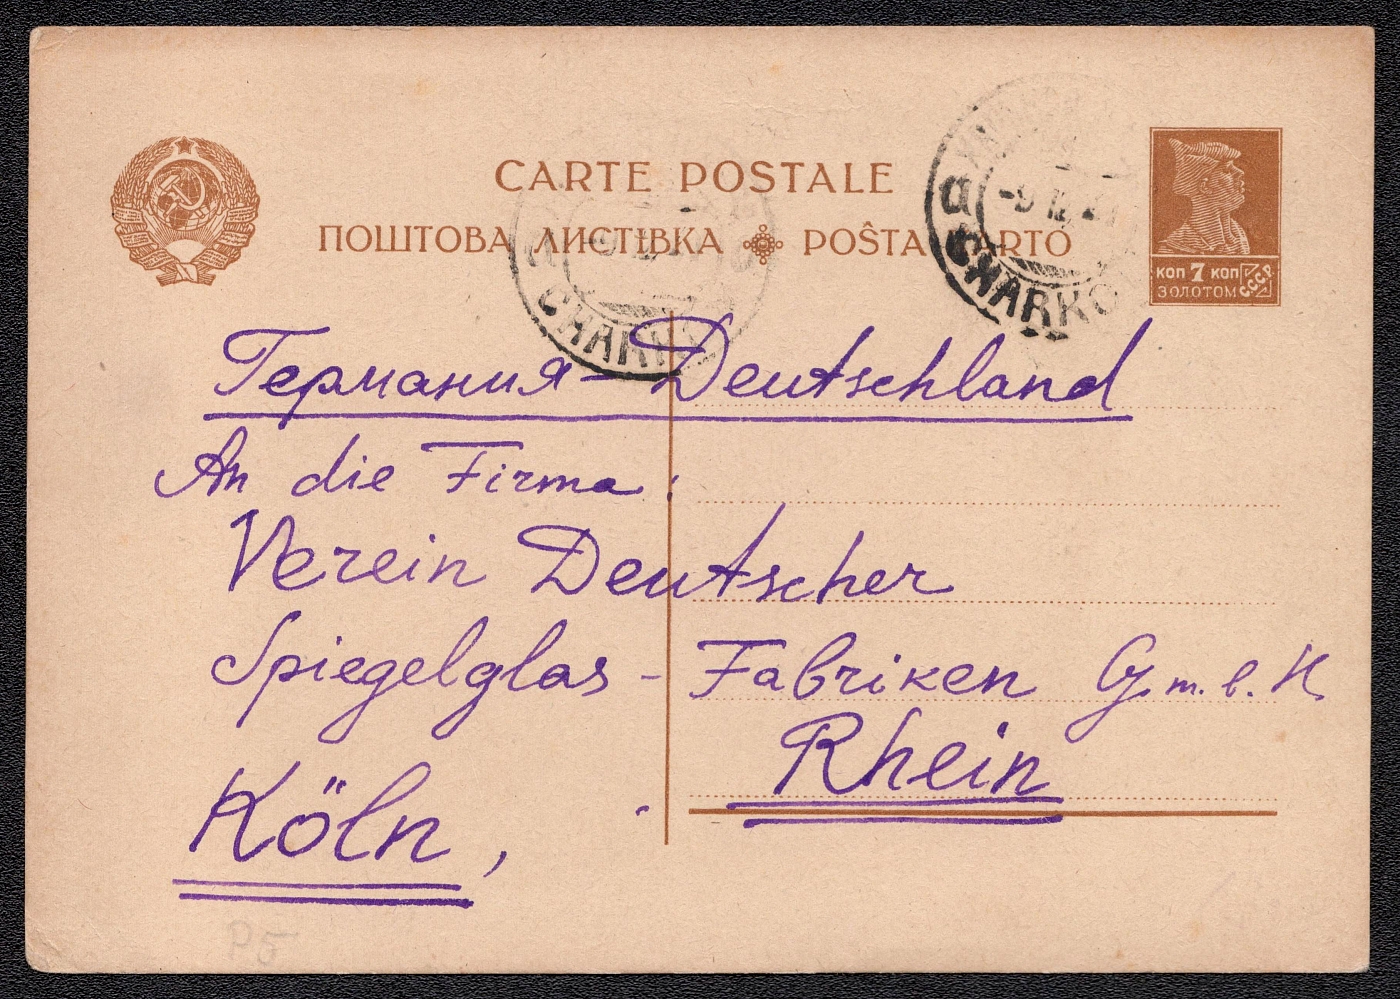 CARTE POSTALE
ПОШТОВА ЛИСТІВКА POŜTA KARTO
КОП 7 КОП
ЗОЛОТОМ СССР
CHARKO
CHARK
Германия - Deutschland
An die Firma:
Verein Deutscher
Spiegelglas - Fabriken G. m. b. H.
Rhein
Köln,
P5